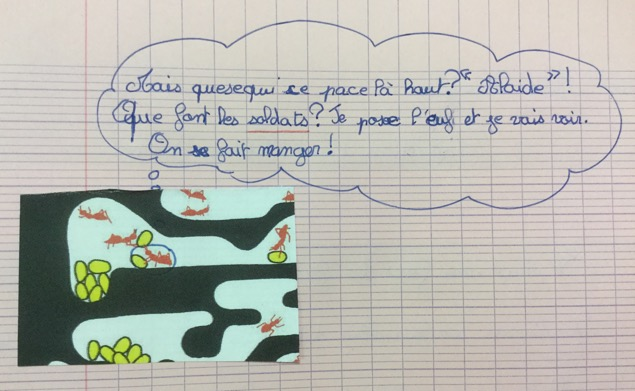 Mais quesequi se pace là haut? " A l'aide "!
Que font les soldats? Je pose l'euf et je vais voir.
On se fait manger!